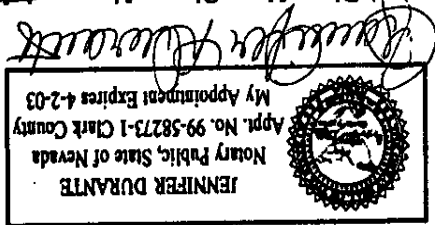 JENNIFER DURANTE
Notary Public, State of Nevada
Appt. No. 99-58273-1 Clark County
My Appointment Expires 4-2-03
Jennifer Durante